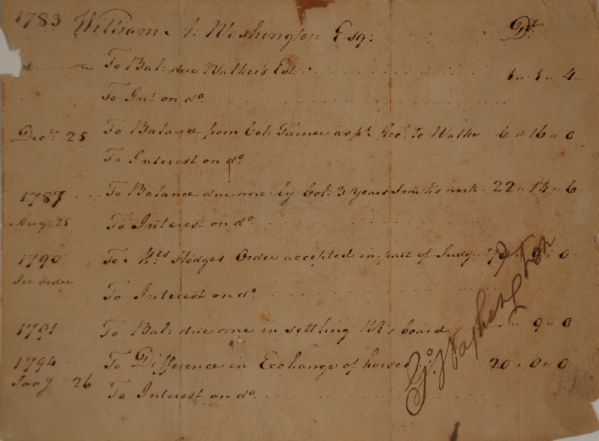 1783 William A: Washington Esq: Dr
To Bal: due Walker's Est: 1 " 1 " 4
To Int on do
Decr 25 To Balance from Col: Turner as pr. Rect. to Walker 6 " 16 " 0
To Interest on do
1787 To Balance due me by Col: 3 Years Smith's work 22 " 14 " 6
Augt 28 To Interest on do
1790 To Hodge's Order accepted in part of Judgt 0
See order To Interest on do
1791 To Bal: due me in settling board 9 " 0
1794 To Difference in Exchange of horses 20 " 0 " 0
Jany 26 To Interest on do
Go Washington